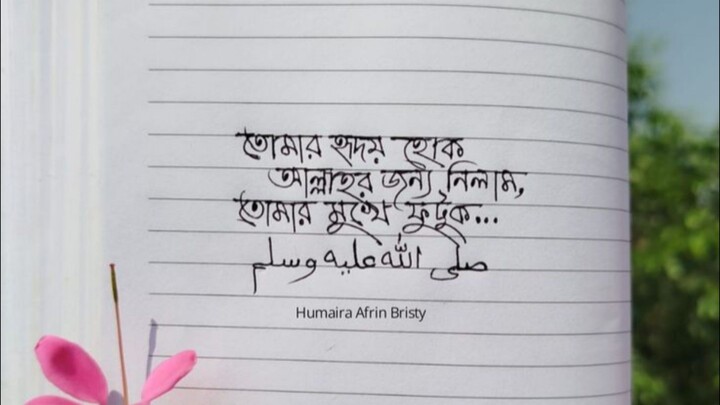 তোমার হৃদয় হোক
আল্লাহর জন্য নিলাম,
তোমার মুখে ফুটুক...
صلى الله عليه وسلم
Humaira Afrin Bristy